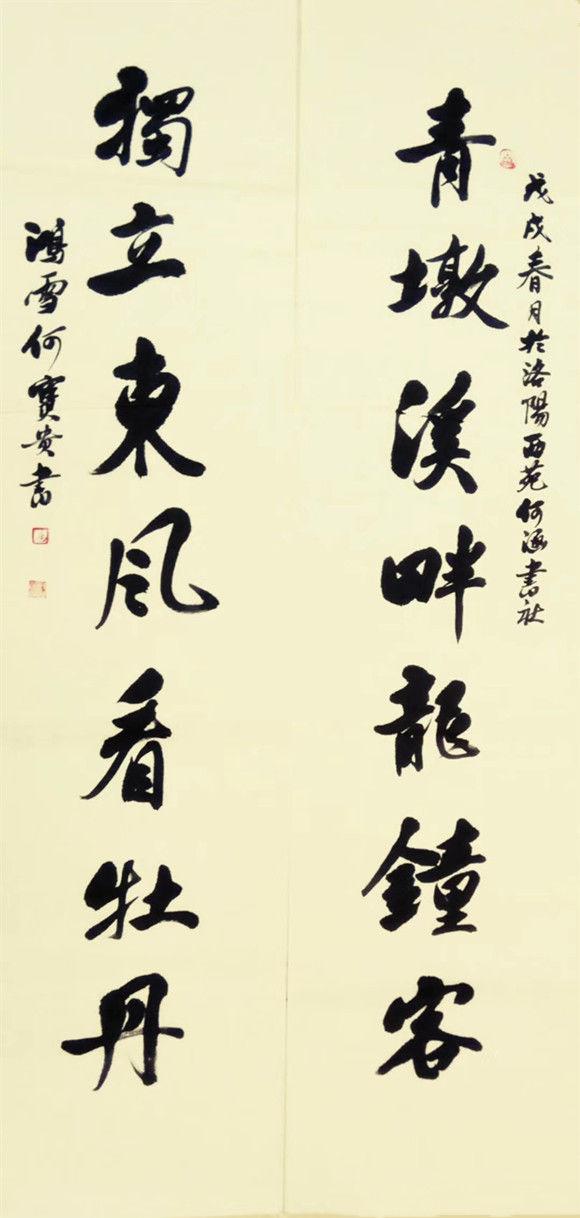 戊戌春月於洛陽西苑何書社
青墩溪畔龍鐘客
獨立東風看牡丹
鴻雪何寶貴書